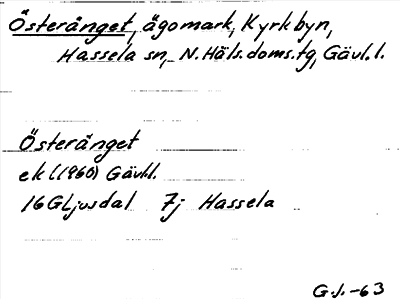 Österånget, ägomark, Kyrkbyn,
Hassela sn, N.Häls.doms.tg, Gävl.l.
Österånget
ek l(1960) Gävl.l.
16G Ljusdal 7j Hassela
G.J.-63